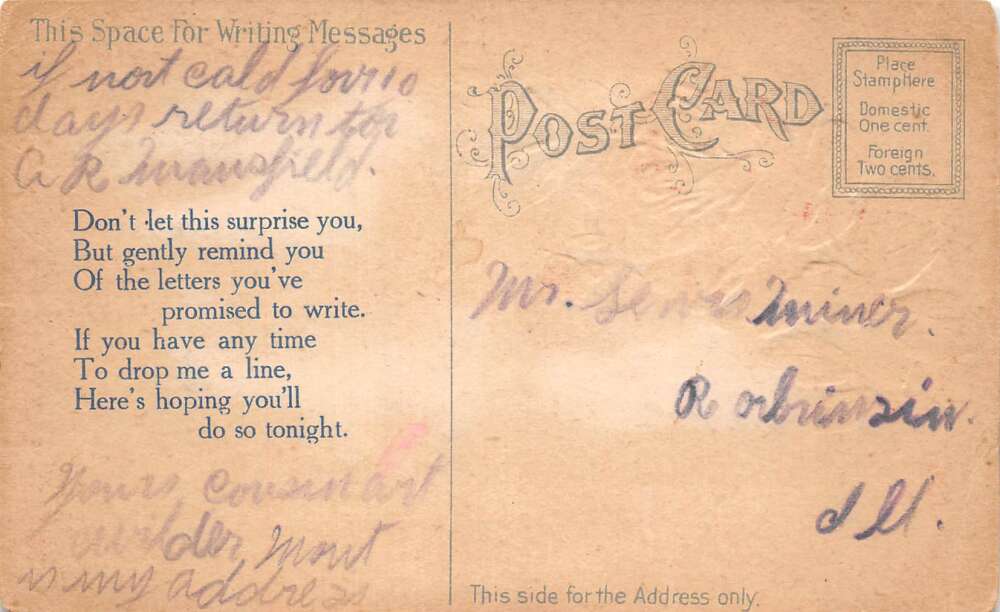 This Space For Writing Messages
if not cald for 10
days return to
A R Mansfield.
Don't let this surprise you,
But gently remind you
Of the letters you've
promised to write.
If you have any time
To drop me a line,
Here's hoping you'll
do so tonight.
Yours cousin Art
wilder, Mont
is my address
POST CARD
Place
Stamp Here
Domestic
One cent.
Foreign
Two cents.
Mr. Lewis Miner.
Robinsin.
Ill.
This side for the Address only.